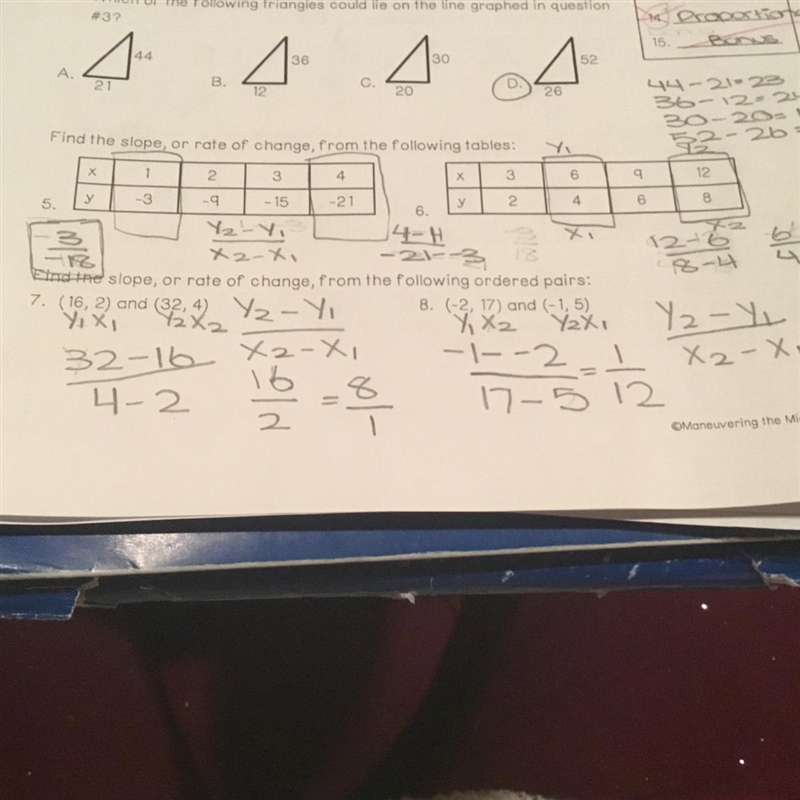 the following triangles could lie on the line graphed in question
#3?
14. Proportion
15. Bonus
A. 44 21
B. 36 12
C. 30 20
D. 52 26
44-21=23
36-12=24
30-20=
52-26=
Find the slope, or rate of change, from the following tables:
y1 y2
5. x 1 2 3 4
y -3 -9 -15 -21
6. x 3 6 9 12
y 2 4 6 8
x1 x2
-3/-18
Y2-Y1/X2-X1
4-1/-21--3
12-6/8-4
6/4
Find the slope, or rate of change, from the following ordered pairs:
7. (16, 2) and (32, 4)
Y1 X1 Y2 X2
Y2-Y1/X2-X1
32-16/4-2
16/2 = 8/1
8. (-2, 17) and (-1, 5)
Y1 X2 Y2 X1
Y2-Y1/X2-X
-1--2/17-5 = 1/12
©Maneuvering the Mi